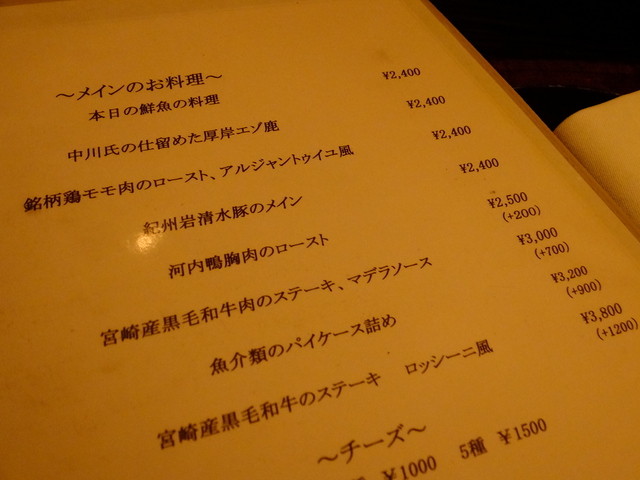 ～メインのお料理～
本日の鮮魚の料理 ¥2,400
中川氏の仕留めた厚岸エゾ鹿 ¥2,400
銘柄鶏モモ肉のロースト、アルジャントゥイユ風 ¥2,400
紀州岩清水豚のメイン ¥2,400
河内鴨胸肉のロースト ¥2,500 (+200)
宮崎産黒毛和牛肉のステーキ、マデラソース ¥3,000 (+700)
魚介類のパイケース詰め ¥3,200 (+900)
宮崎産黒毛和牛のステーキ ロッシーニ風 ¥3,800 (+1200)
～チーズ～
¥1000 5種 ¥1500